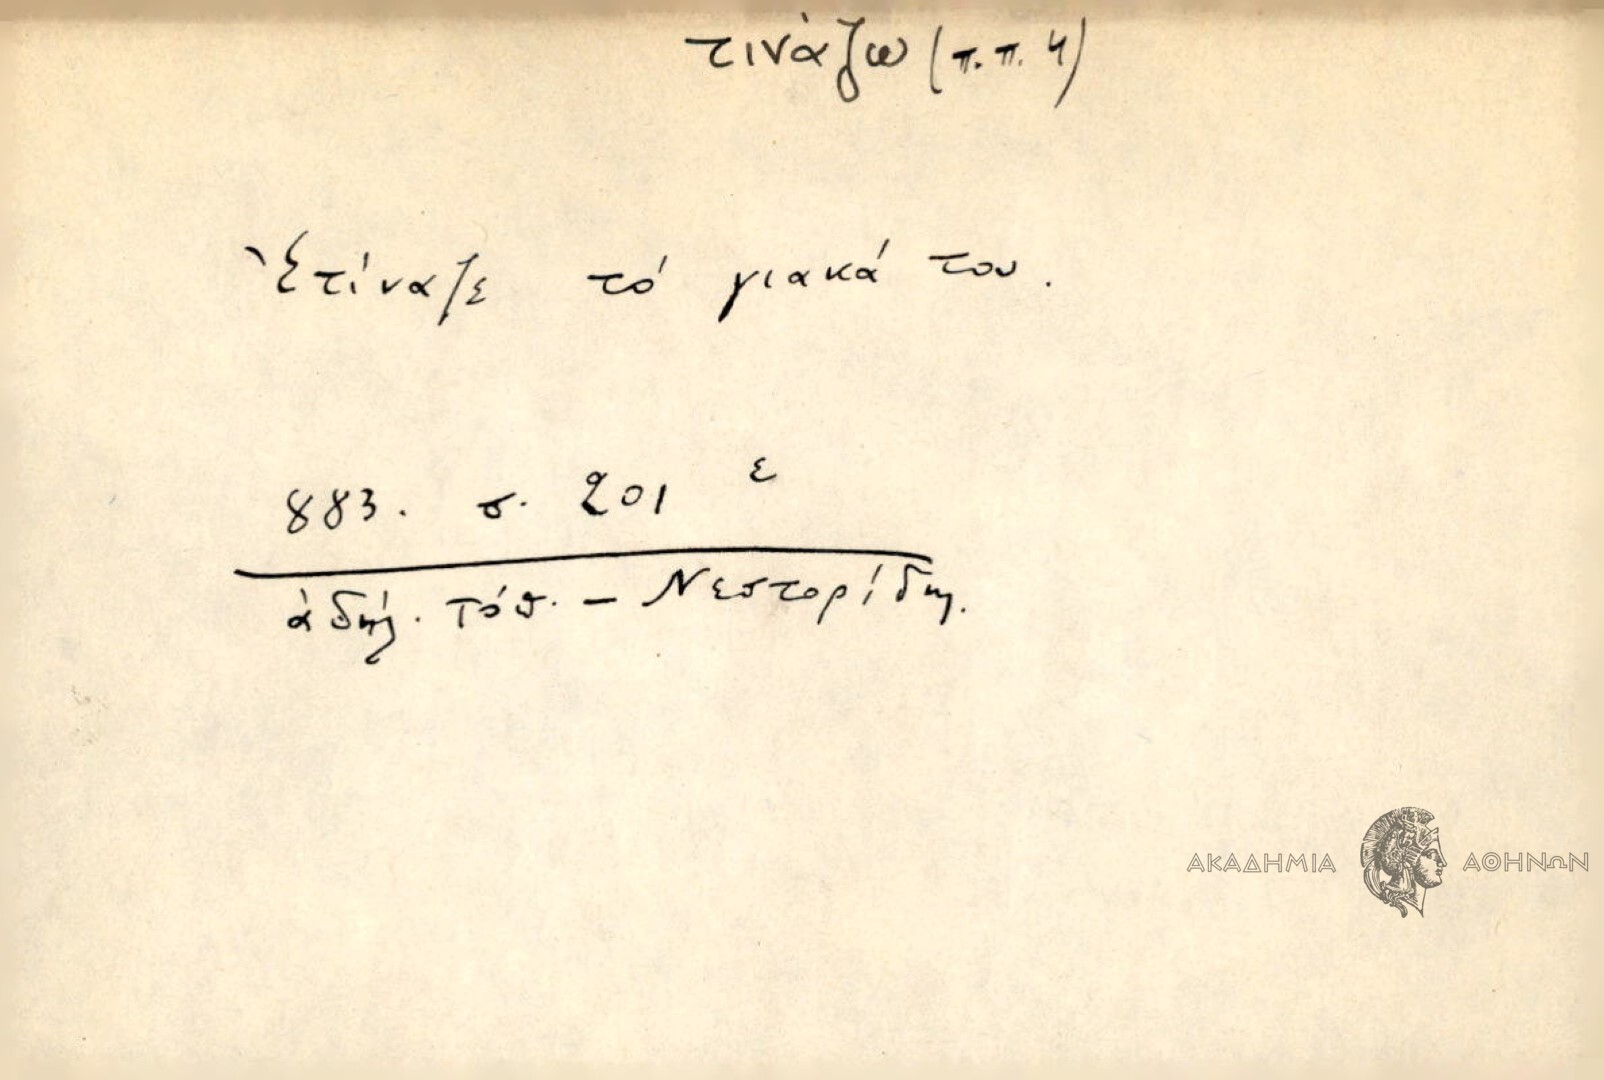 τινάζω (π.π. 4)
Ἐτίναξε τό γιακά του.
883. σ. 201 ε
ἀδήλ. τόπ. – Νεστορίδης.
ΑΚΑΔΗΜΙΑ ΑΘΗΝΩΝ